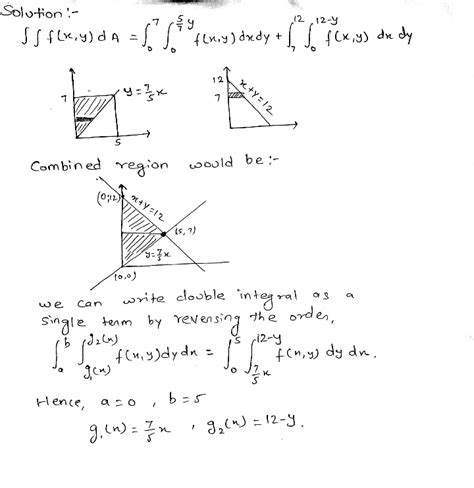 Solution:-
∫∫ f(x,y) dA = ∫₀⁷ ∫₀^{5/7 y} f(x,y) dxdy + ∫₇¹² ∫₀^{12-y} f(x,y) dx dy
7 y = 7/5 x 5
12 7 x+y=12
Combined region would be:-
(0,12) x+y=12
(5,7)
y=7/5 x
(0,0)
we can write double integral as a
single term by reversing the order,
∫ₐᵇ ∫_{g₁(x)}^{g₂(x)} f(x,y) dy dx = ∫₀⁵ ∫_{7/5 x}^{12-y} f(x,y) dy dx.
Hence, a=0 , b=5
g₁(x) = 7/5 x , g₂(x) = 12-y.